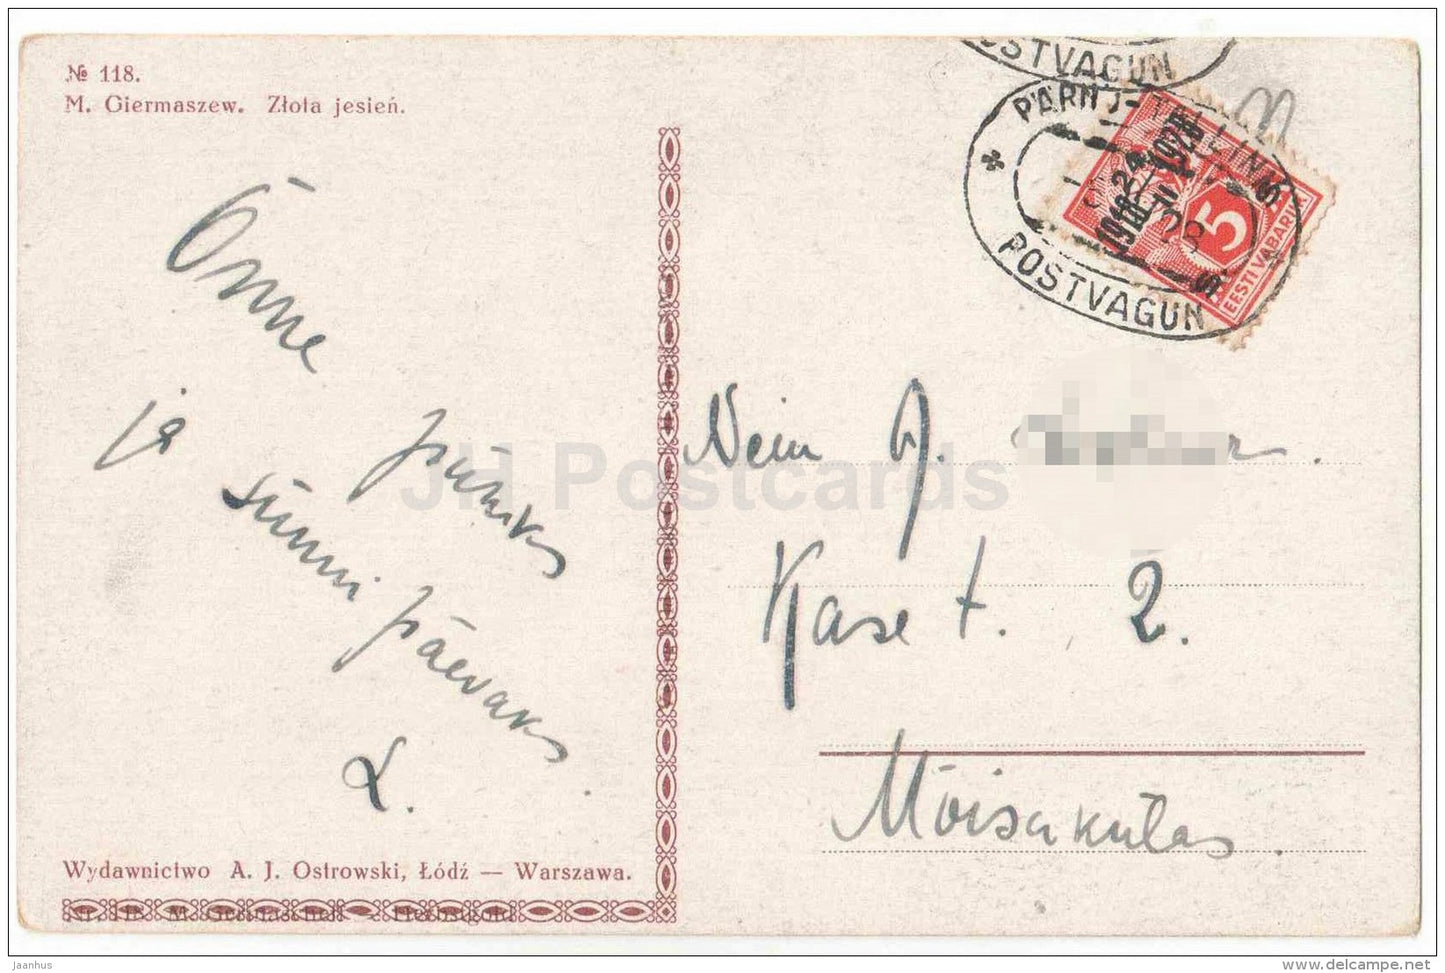 № 118.
M. Giermaszew. Złota jesień.
POSTVAGUN
PÄRNU-TALLINN
POSTVAGUN
1918 24/II 1928
5
EESTI VABARIIK
Õnne
ja
sünni päevaks
L.
Neiu A.
Kase t. 2.
Mõisakülas.
JH Postcards
Wydawnictwo A. J. Ostrowski, Łódź — Warszawa.
Nr. 118. M.
Herbstgold
jaanhus
www.delcampe.net